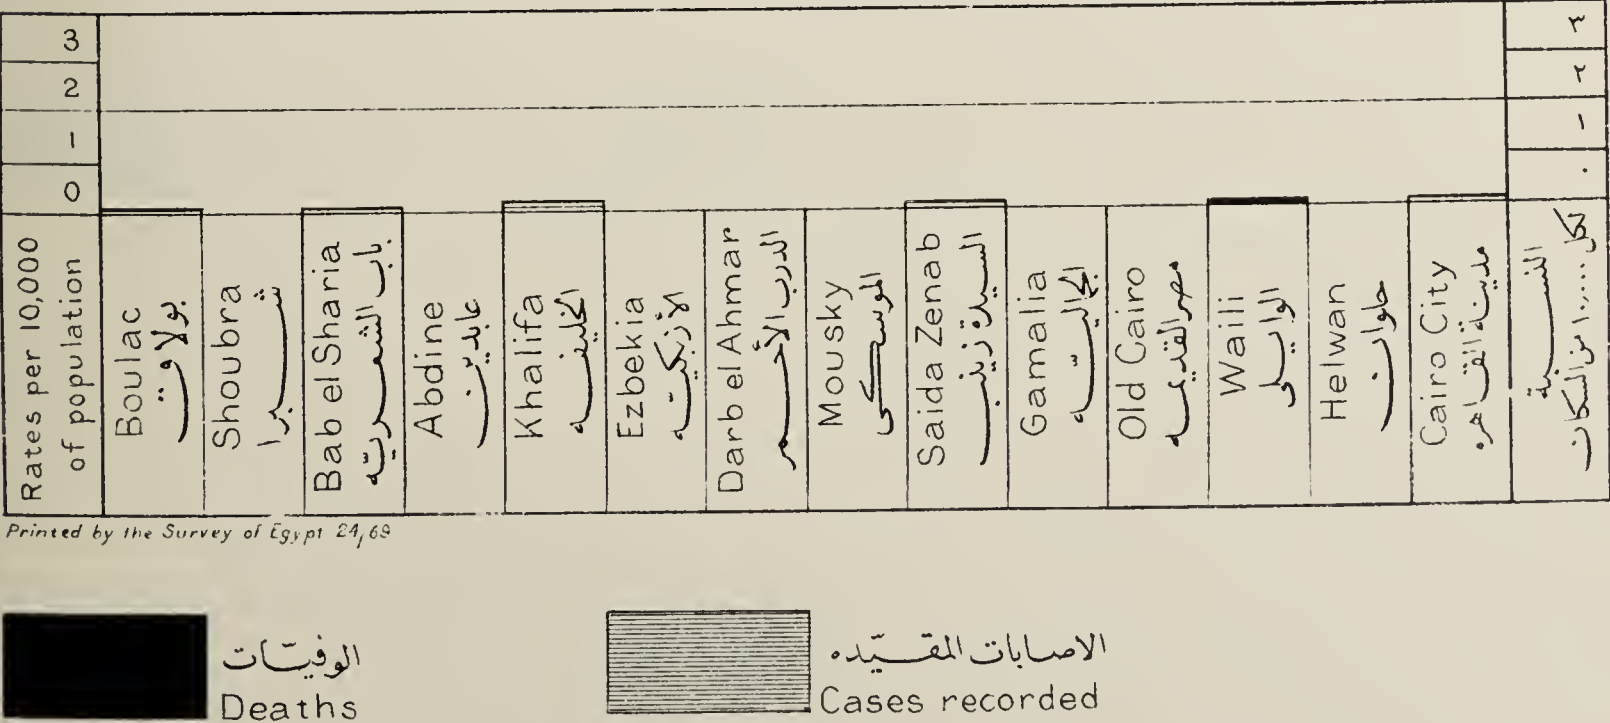 3
2
1
0
٣
٢
١
٠
Rates per 10,000
of population
Boulac
بولاق
Shoubra
شبرا
Bab el Sharia
باب الشعرية
Abdine
عابدين
Khalifa
الخليفه
Ezbekia
الأزبكيّه
Darb el Ahmar
الدرب الأحمر
Mousky
الموسكى
Saida Zenab
السيدة زينب
Gamalia
الجماليّه
Old Cairo
مصر القديمه
Waili
الوايلى
Helwan
حلوان
Cairo City
مدينة القاهره
النسبة
لكل ١٠,٠٠٠ من السكان
Printed by the Survey of Egypt 24/69
الوفيّات
Deaths
الاصابات المقيّده
Cases recorded